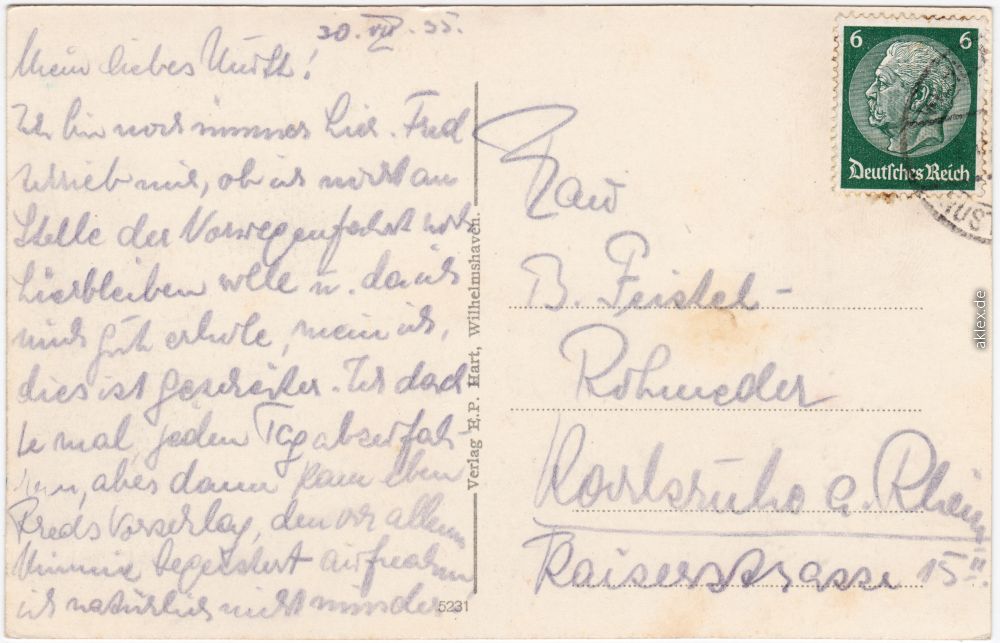 30. VII. 35.
Mein liebes Mutti!
Ich bin noch immer hier. Fred
schrieb mir, ob ich nicht an
Stelle der Norwegenfahrt noch
hierbleiben wolle u. da ich
mich gut erhole, mein ich,
dies ist gescheiter. Ich dach
te mal, jeden Tag abzufah-
ren, aber dann kam eben
Freds Vorschlag, den vor allem
begeistert aufnahm
ich natürlich nicht minder.
Verlag E.P. Hart, Wilhelmshaven.
5231
6 6
Deutsches Reich
RUST
Frau
B. Feistel-
Rohmeder
Karlsruhe a. Rhein
Kaiserstrasse 15 II.
aklex.de